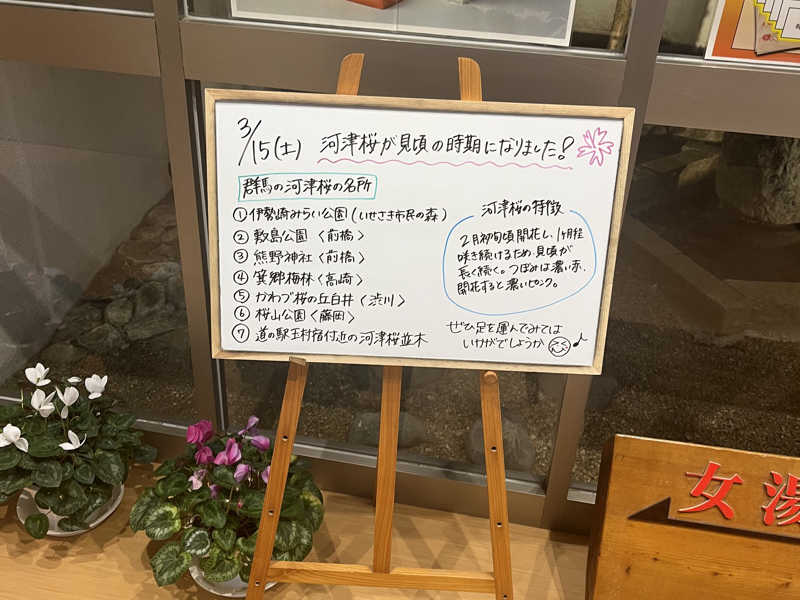 3/15(土) 河津桜が見頃の時期になりました!
群馬の河津桜の名所
①伊勢崎みらい公園(いせさき市民の森)
②敷島公園〈前橋〉
③熊野神社〈前橋〉
④箕郷梅林〈高崎〉
⑤かわづ桜の丘白井〈渋川〉
⑥桜山公園〈藤岡〉
⑦道の駅玉村宿付近の河津桜並木
河津桜の特徴
2月初旬頃開花し、1ヶ月程
咲き続けるため、見頃が
長く続く。つぼみは濃い赤、
開花すると濃いピンク。
ぜひ足を運んでみては
いかがでしょうか♪
女湯